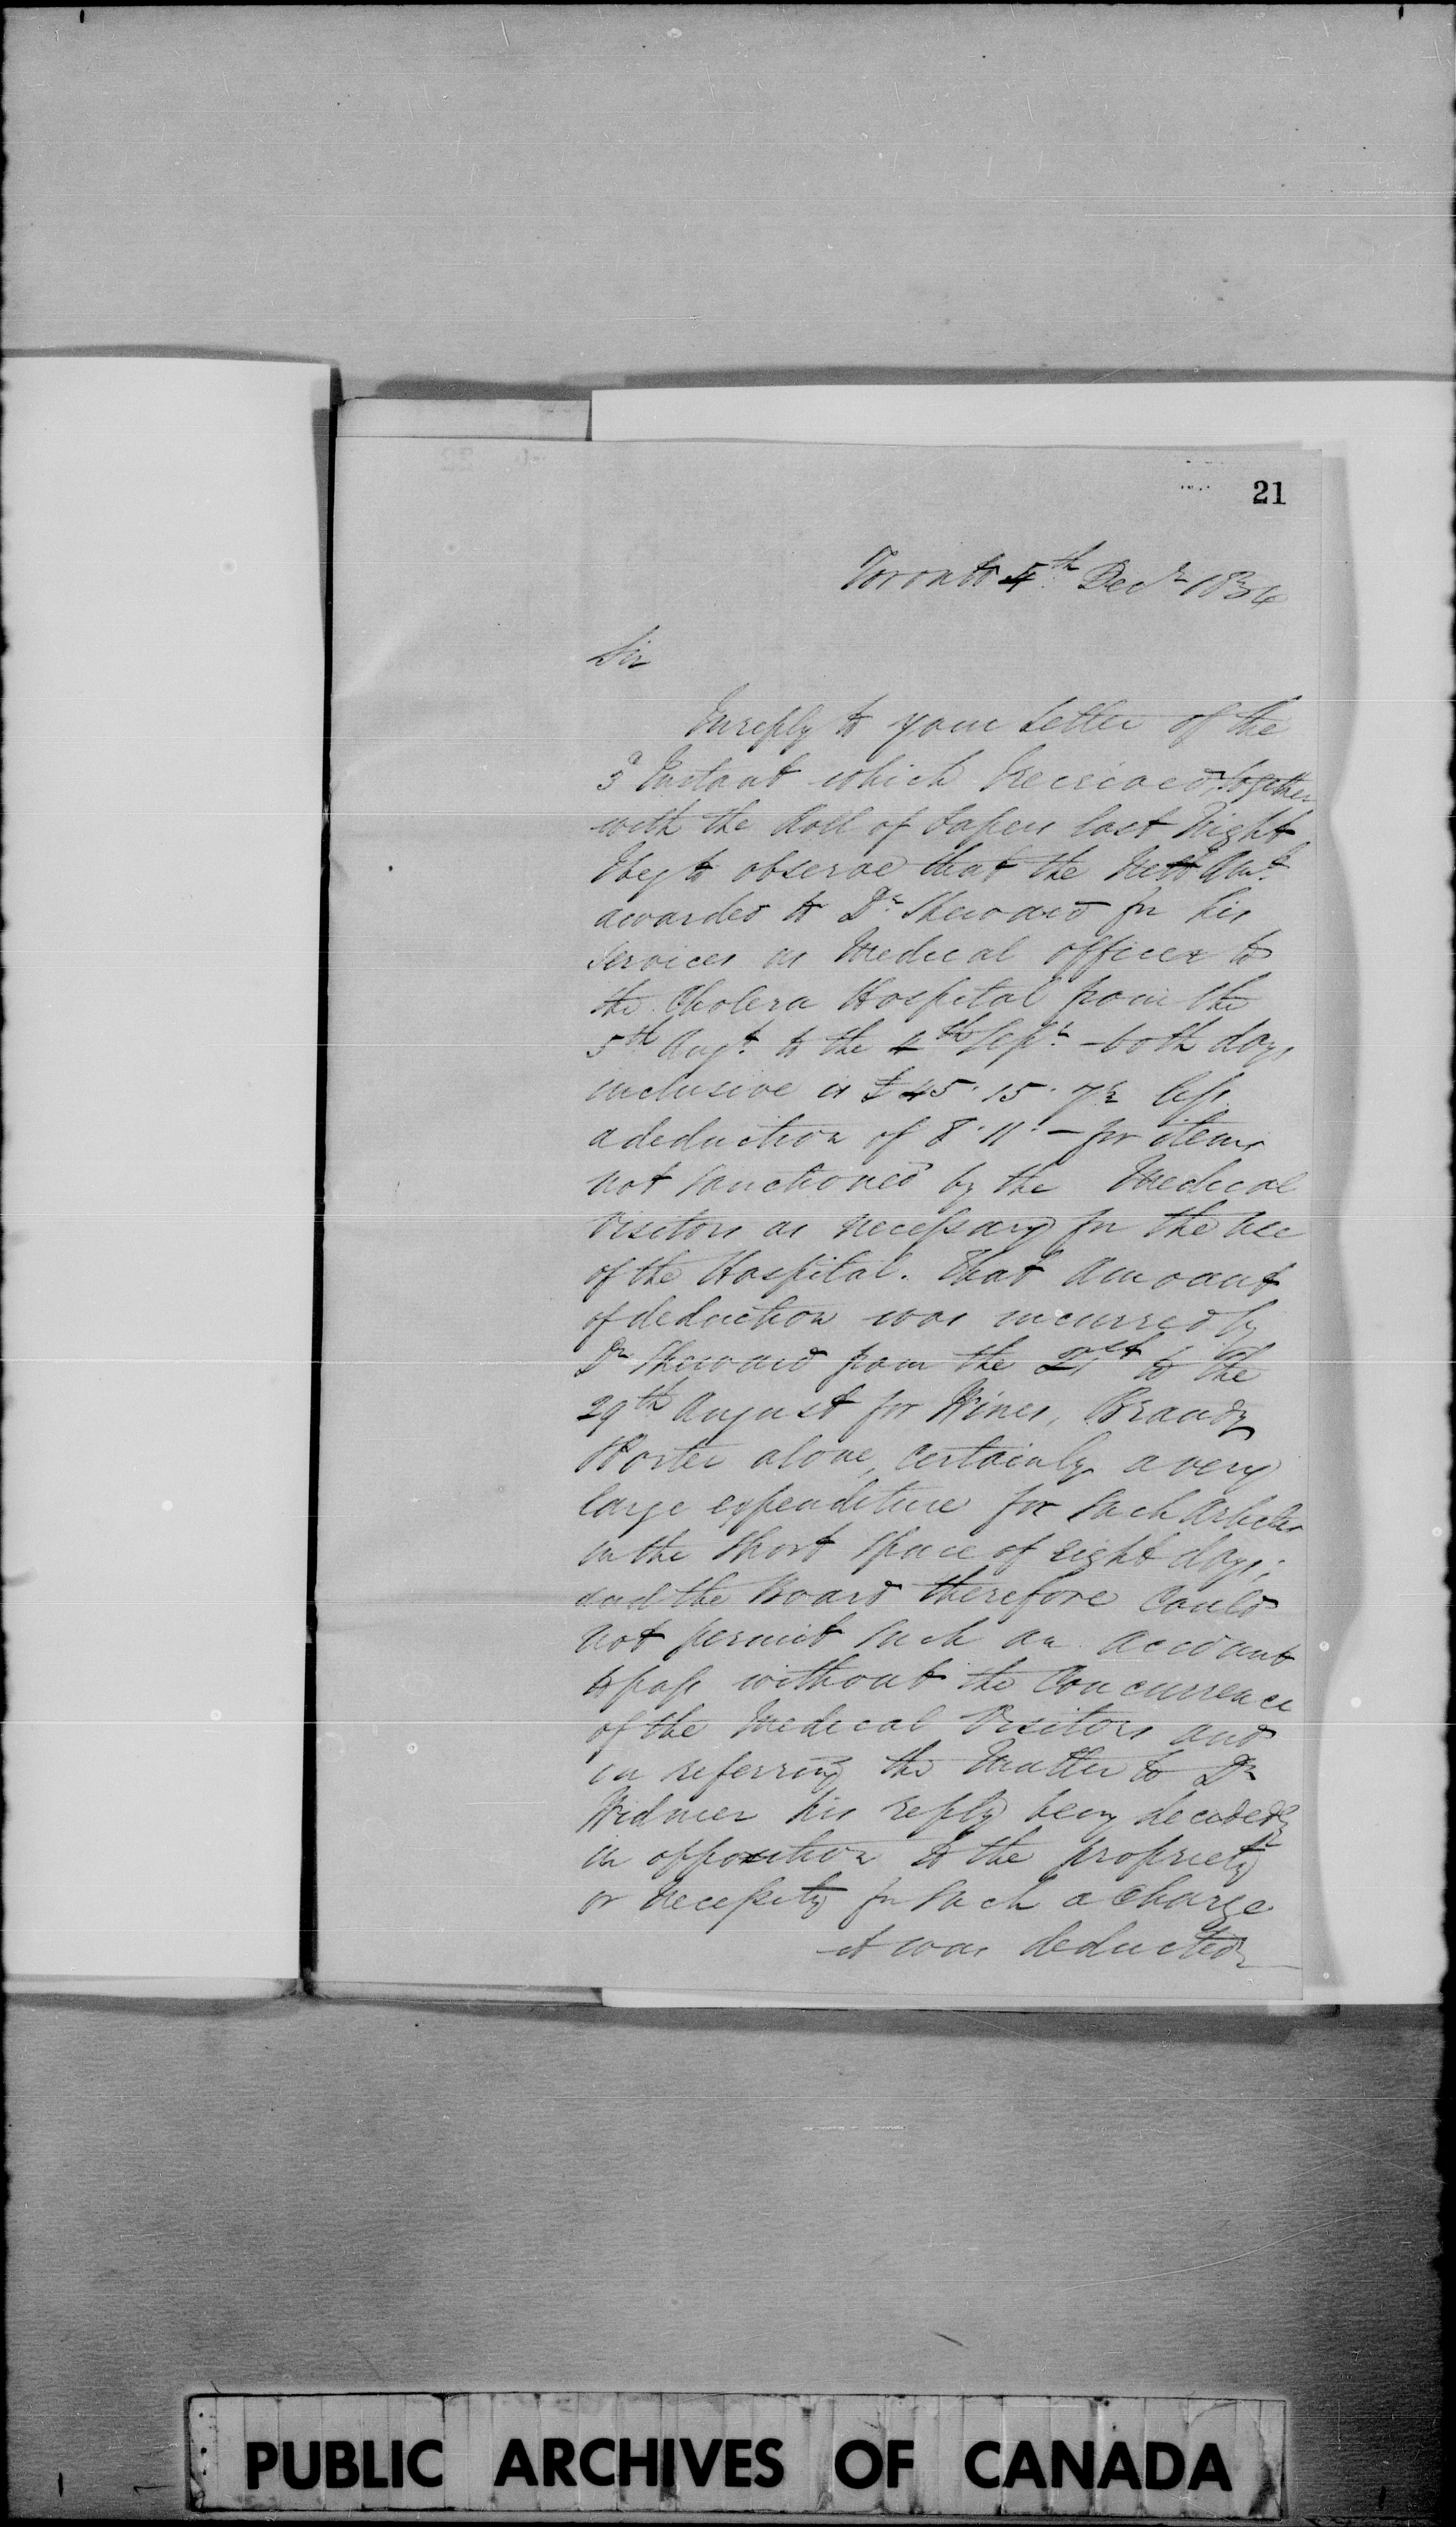 21
Toronto 4th Decr 1834
Sir
In reply to your Letter of the
3d Instant which I received, together
with the Roll of Papers last Night
I beg to observe that the Nett Amt
awarded to Dr Sheward for his
Services as Medical officer to
the Cholera Hospital from the
5th Augt to the 4th Sepr - both days
inclusive is £45.15.7½ less
a deduction of 8.11.- for items
not sanctioned by the Medical
Visitors as necessary for the use
of the Hospital. That amount
of deduction was incurred by
Dr Sheward from the 21st to the
29th August for Wines, Brandy
Porter alone, certainly a very
large expenditure for such Articles
in the short space of eight days;
and the Board therefore could
not permit such an account
to pass without the Concurrence
of the Medical Visitors and
in referring the Matter to Dr
Widmer his reply being decidedly
in opposition to the propriety
or necessity for such a Charge
it was deducted
PUBLIC ARCHIVES OF CANADA